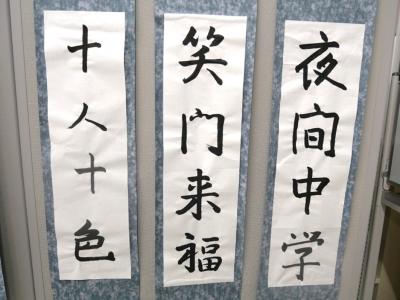 夜間中学
笑門来福
十人十色